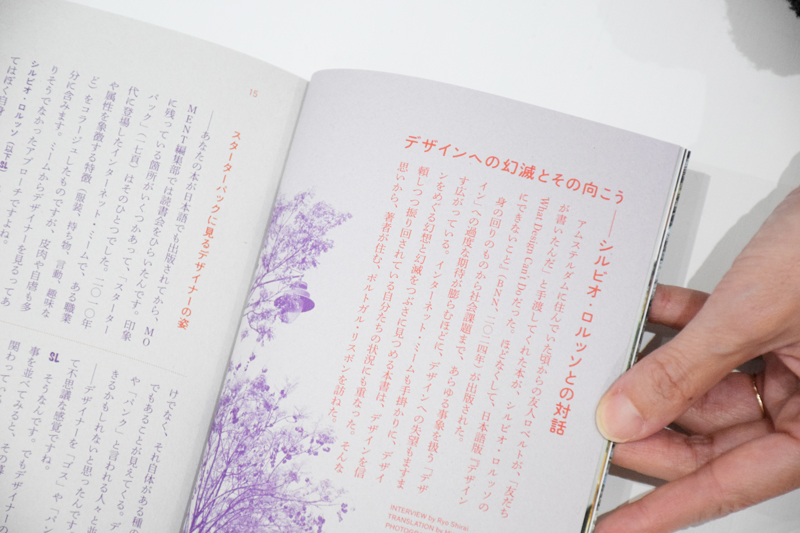 デザインへの幻滅とその向こう
──シルビオ・ロルッソとの対話
アムステルダムに住んでいた頃からの友人ロベルトが、「友だち
が書いたんだ」と手渡してくれた本が、シルビオ・ロルッソの
What Design Can't Doだった。ほどなくして、日本語版『デザイン
にできないこと』(BNN、二〇二四年)が出版された。
身の回りのものから社会課題まで、あらゆる事象を扱う「デザ
イン」への過度な期待が膨らむほどに、デザインへの失望もますま
す広がっている。インターネット・ミームも手掛かりに、デザイ
ンをめぐる幻想と幻滅をつぶさに見つめる本書は、デザインを信
頼しつつ振り回されてもいる自分たちの状況にも重なった。そんな
思いから、著者が住む、ポルトガル・リスボンを訪ねた。
INTERVIEW by Ryo Shirai
TRANSLATION by
15
スターターパックに見るデザイナーの姿
──あなたの本が日本語でも出版されてから、MO
MENT編集部では読書会をひらいたんです。印象
に残っている箇所がいくつかあって、「スターター
パック」(一七頁)はそのひとつでした。二〇一〇年
代に登場したインターネット・ミームで、ある職業
や属性を象徴する特徴(服装、持ち物、言動、趣味な
ど)をコラージュしたものですが、皮肉や自虐も多
分に含みます。ミームからデザイナーを見るってあ
りそうでなかったアプローチですよね。
シルビオ・ロルッソ(以下SL)
てはぼく自身
けでなく、それ自体がある種の
でもあることが見えてくる。デ
や「パンク」と言われる人々と並
きるかもしれないと思ったんです
──デザイナーを「ゴス」や「パン
て不思議な感覚ですね。
SL そうなんです。でもデザ
事を並べてみると、デザイナーの